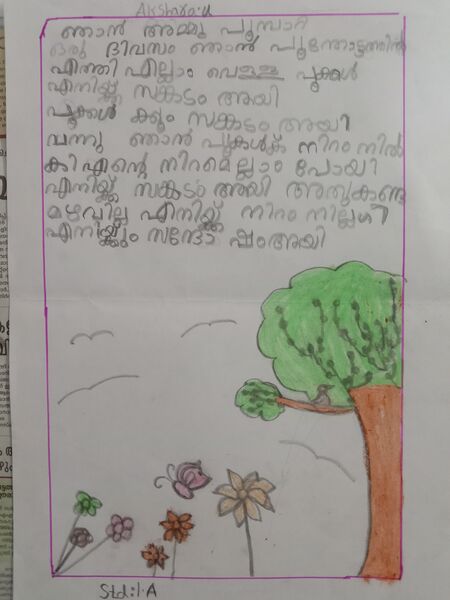 Akshara.u
ഞാൻ അമ്മു പൂമ്പാറ്റ
ഒരു ദിവസം ഞാൻ പൂന്തോട്ടത്തിൽ
എത്തി എല്ലാം വെള്ള പൂക്കൾ
എനിയ്ക്ക് സങ്കടം അയി
പൂക്കൾ ക്കും സങ്കടം അയി
വന്നു ഞാൻ പൂകൾക്ക് നിറം നൽ
കി എന്റെ നിറമെ ല്ലാം പോയി
എനിയ്ക്ക് സങ്കടം അയി അതുകണ്ട
മഴവില്ല എനിയ്ക്ക് നിറം
എനിയ്ക്കും സന്തോ ഷംഅയി
Std:1.A